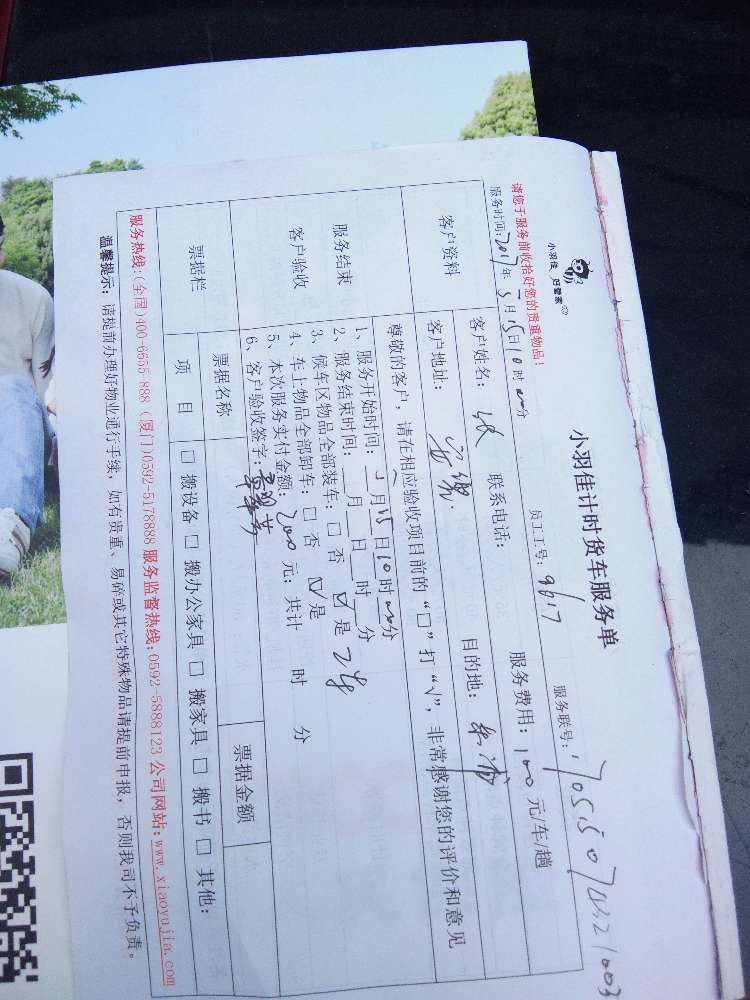 小羽佳 好管家
小羽佳计时货车服务单
服务联号:
请您于服务前收拾好您的贵重物品!
员工工号: 9617
服务时间: 2017年5月15日10时00分
服务费用: 100元/车/趟
客户资料
客户姓名: 张 联系电话:
客户地址: 目的地:
尊敬的客户, 请在相应验收项目前的“□”打“√”, 非常感谢您的评价和意见
服务结束
客户验收
1、服务开始时间: 5月15日10时00分
2、服务结束时间: 月 日 时 分
3、候车区物品全部装车: □ 否 ☑ 是 2步
4、车上物品全部卸车: □ 否 ☑ 是
5、本次服务实付金额: 200元; 共计 时 分
6、客户验收签字:
票据栏
票据名称 票据金额
项 目 □ 搬设备 □ 搬办公家具 □ 搬家具 □ 搬书 □ 其他:
服务热线:(全国)400-6655-888 (厦门)0592-5178888 服务监督热线:0592-5888123 公司网站:www.xiaoyujia.com
温馨提示: 请提前办理好物业通行手续, 如有贵重、易碎或其它特殊物品请提前申报, 否则我司不予负责。